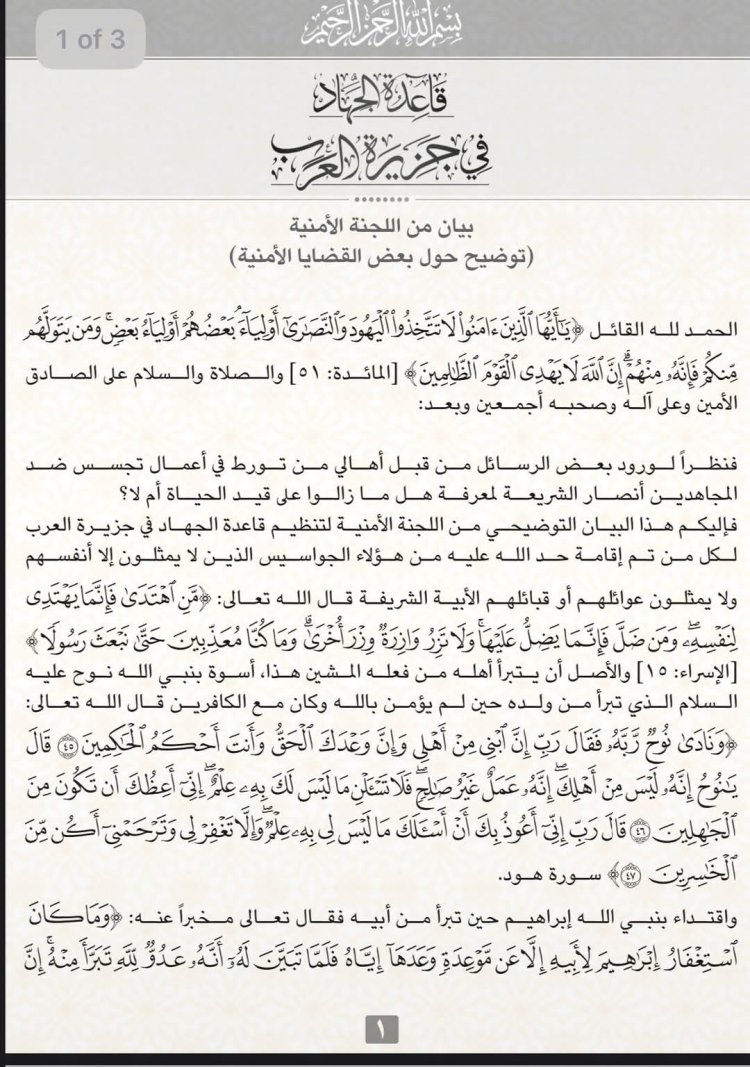 بسم الله الرحمن الرحيم
1 of 3
قاعدة الجهاد
في جزيرة العرب
بيان من اللجنة الأمنية
(توضيح حول بعض القضايا الأمنية)
الحمد لله القائل ﴿يَٰٓأَيُّهَا ٱلَّذِينَ ءَامَنُوا۟ لَا تَتَّخِذُوا۟ ٱلْيَهُودَ وَٱلنَّصَٰرَىٰٓ أَوْلِيَآءَ ۘ بَعْضُهُمْ أَوْلِيَآءُ بَعْضٍ ۚ وَمَن يَتَوَلَّهُم
مِّنكُمْ فَإِنَّهُۥ مِنْهُمْ ۗ إِنَّ ٱللَّهَ لَا يَهْدِى ٱلْقَوْمَ ٱلظَّٰلِمِينَ﴾ [المائدة: ٥١] والصلاة والسلام على الصادق
الأمين وعلى آله وصحبه أجمعين وبعد:
فنظراً لورود بعض الرسائل من قبل أهالي من تورط في أعمال تجسس ضد
المجاهدين أنصار الشريعة لمعرفة هل ما زالوا على قيد الحياة أم لا؟
فإليكم هذا البيان التوضيحي من اللجنة الأمنية لتنظيم قاعدة الجهاد في جزيرة العرب
لكل من تم إقامة حد الله عليه من هؤلاء الجواسيس الذين لا يمثلون إلا أنفسهم
ولا يمثلون عوائلهم أو قبائلهم الأبية الشريفة قال الله تعالى: ﴿مَّنِ ٱهْتَدَىٰ فَإِنَّمَا يَهْتَدِى
لِنَفْسِهِۦ ۖ وَمَن ضَلَّ فَإِنَّمَا يَضِلُّ عَلَيْهَا ۚ وَلَا تَزِرُ وَازِرَةٌ وِزْرَ أُخْرَىٰ ۗ وَمَا كُنَّا مُعَذِّبِينَ حَتَّىٰ نَبْعَثَ رَسُولًا﴾
[الإسراء: ١٥] والأصل أن يتبرأ أهله من فعله المشين هذا، أسوة بنبي الله نوح عليه
السلام الذي تبرأ من ولده حين لم يؤمن بالله وكان مع الكافرين قال الله تعالى:
﴿وَنَادَىٰ نُوحٌ رَّبَّهُۥ فَقَالَ رَبِّ إِنَّ ٱبْنِى مِنْ أَهْلِى وَإِنَّ وَعْدَكَ ٱلْحَقُّ وَأَنتَ أَحْكَمُ ٱلْحَٰكِمِينَ ٤٥ قَالَ
يَٰنُوحُ إِنَّهُۥ لَيْسَ مِنْ أَهْلِكَ ۖ إِنَّهُۥ عَمَلٌ غَيْرُ صَٰلِحٍ ۖ فَلَا تَسْـَٔلْنِ مَا لَيْسَ لَكَ بِهِۦ عِلْمٌ ۖ إِنِّىٓ أَعِظُكَ أَن تَكُونَ مِنَ
ٱلْجَٰهِلِينَ ٤٦ قَالَ رَبِّ إِنِّىٓ أَعُوذُ بِكَ أَنْ أَسْـَٔلَكَ مَا لَيْسَ لِى بِهِۦ عِلْمٌ ۖ وَإِلَّا تَغْفِرْ لِى وَتَرْحَمْنِىٓ أَكُن مِّنَ
ٱلْخَٰسِرِينَ ٤٧﴾ سورة هود.
واقتداء بنبي الله إبراهيم حين تبرأ من أبيه فقال تعالى مخبراً عنه: ﴿وَمَا كَانَ
ٱسْتِغْفَارُ إِبْرَٰهِيمَ لِأَبِيهِ إِلَّا عَن مَّوْعِدَةٍ وَعَدَهَآ إِيَّاهُ فَلَمَّا تَبَيَّنَ لَهُۥٓ أَنَّهُۥ عَدُوٌّ لِّلَّهِ تَبَرَّأَ مِنْهُ ۚ إِنَّ
١